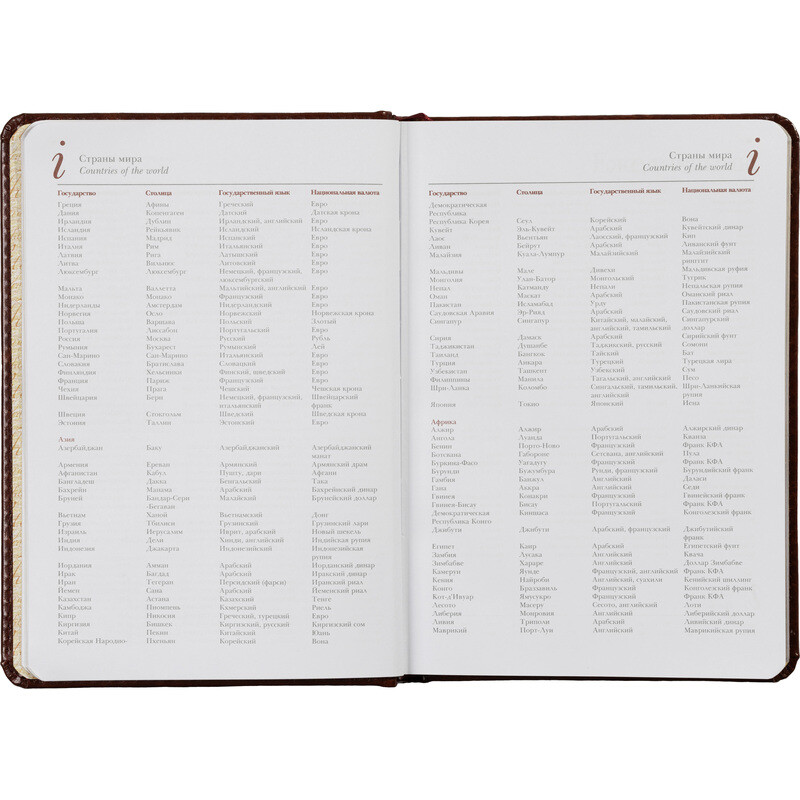 i
Страны мира
Countries of the world
Государство Столица Государственный язык Национальная валюта
Греция Афины Греческий Евро
Дания Копенгаген Датский Датская крона
Ирландия Дублин Ирландский, английский Евро
Исландия Рейкьявик Исландский Исландская крона
Испания Мадрид Испанский Евро
Италия Рим Итальянский Евро
Латвия Рига Латышский Евро
Литва Вильнюс Литовский Евро
Люксембург Люксембург Немецкий, французский, Евро
люксембургский
Мальта Валлетта Мальтийский, английский Евро
Монако Монако Французский Евро
Нидерланды Амстердам Нидерландский Евро
Норвегия Осло Норвежский Норвежская крона
Польша Варшава Польский Злотый
Португалия Лиссабон Португальский Евро
Россия Москва Русский Рубль
Румыния Бухарест Румынский Лей
Сан-Марино Сан-Марино Итальянский Евро
Словакия Братислава Словацкий Евро
Финляндия Хельсинки Финский, шведский Евро
Франция Париж Французский Евро
Чехия Прага Чешский Чешская крона
Швейцария Берн Немецкий, французский, Швейцарский
итальянский франк
Швеция Стокгольм Шведский Шведская крона
Эстония Таллин Эстонский Евро
Азия
Азербайджан Баку Азербайджанский Азербайджанский
манат
Армения Ереван Армянский Армянский драм
Афганистан Кабул Пушту, дари Афгани
Бангладеш Дакка Бенгальский Така
Бахрейн Манама Арабский Бахрейнский динар
Бруней Бандар-Сери Малайский Брунейский доллар
-Бегаван
Вьетнам Ханой Вьетнамский Донг
Грузия Тбилиси Грузинский Грузинский лари
Израиль Иерусалим Иврит, арабский Новый шекель
Индия Дели Хинди, английский Индийская рупия
Индонезия Джакарта Индонезийский Индонезийская
рупия
Иордания Амман Арабский Иорданский динар
Ирак Багдад Арабский Иракский динар
Иран Тегеран Персидский (фарси) Иранский риал
Йемен Сана Арабский Йеменский риал
Казахстан Астана Казахский Тенге
Камбоджа Пномпень Кхмерский Риель
Кипр Никосия Греческий, турецкий Евро
Киргизия Бишкек Киргизский, русский Киргизский сом
Китай Пекин Китайский Юань
Корейская Народно- Пхеньян Корейский Вона
Страны мира
Countries of the world
i
Государство Столица Государственный язык Национальная валюта
Демократическая
Республика
Республика Корея Сеул Корейский Вона
Кувейт Эль-Кувейт Арабский Кувейтский динар
Лаос Вьентьян Лаосский, французский Кип
Ливан Бейрут Арабский Ливанский фунт
Малайзия Куала-Лумпур Малайский Малайзийский
ринггит
Мальдивы Мале Дивехи Мальдивская руфия
Монголия Улан-Батор Монгольский Тугрик
Непал Катманду Непали Непальская рупия
Оман Маскат Арабский Оманский риал
Пакистан Исламабад Урду Пакистанская рупия
Саудовская Аравия Эр-Рияд Арабский Саудовский риал
Сингапур Сингапур Китайский, малайский, Сингапурский
английский, тамильский доллар
Сирия Дамаск Арабский Сирийский фунт
Таджикистан Душанбе Таджикский, русский Сомони
Таиланд Бангкок Тайский Бат
Турция Анкара Турецкий Турецкая лира
Узбекистан Ташкент Узбекский Сум
Филиппины Манила Тагальский, английский Песо
Шри-Ланка Коломбо Сингальский, тамильский, Шри-Ланкийская
английский рупия
Япония Токио Японский Иена
Африка
Алжир Алжир Арабский Алжирский динар
Ангола Луанда Португальский Кванза
Бенин Порто-Ново Французский Франк КФА
Ботсвана Габороне Сетсвана, английский Пула
Буркина-Фасо Уагадугу Французский Франк КФА
Бурунди Бужумбура Рунди, французский Бурундийский франк
Гамбия Банжул Английский Даласи
Гана Аккра Английский Седи
Гвинея Конакри Французский Гвинейский франк
Гвинея-Бисау Бисау Португальский Франк КФА
Демократическая Киншаса Французский Конголезский франк
Республика Конго
Джибути Джибути Арабский, французский Джибутийский
франк
Египет Каир Арабский Египетский фунт
Замбия Лусака Английский Квача
Зимбабве Хараре Английский Доллар Зимбабве
Камерун Яунде Французский, английский Франк КФА
Кения Найроби Английский, суахили Кенийский шиллинг
Конго Браззавиль Французский Конголезский франк
Кот д'Ивуар Ямусукро Французский Франк КФА
Лесото Масеру Сесото, английский Лоти
Либерия Монровия Английский Либерийский доллар
Ливия Триполи Арабский Ливийский динар
Маврикий Порт-Луи Английский Маврикийская рупия